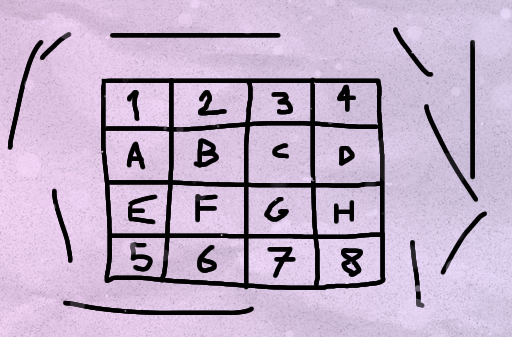 1 2 3 4
A B C D
E F G H
5 6 7 8